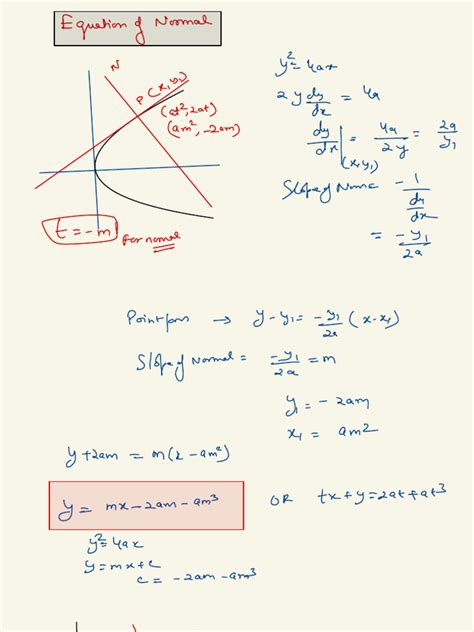 Equation of Normal
N
P (x₁,y₁)
(at², 2at)
(am², -2am)
t = -m
For normal
y² = 4ax
2y dy/dx = 4a
dy/dx |(x₁,y₁) = 4a/2y = 2a/y₁
Slope of Norma - 1/(dy/dx)
= -y₁/2a
Point form → y - y₁ = -y₁/2a (x - x₁)
Slope of Normal = -y₁/2a = m
y₁ = -2am
x₁ = am²
y + 2am = m(x - am²)
y = mx - 2am - am³ OR tx + y = 2at + at³
y² = 4ax
y = mx + c
c = -2am - am³